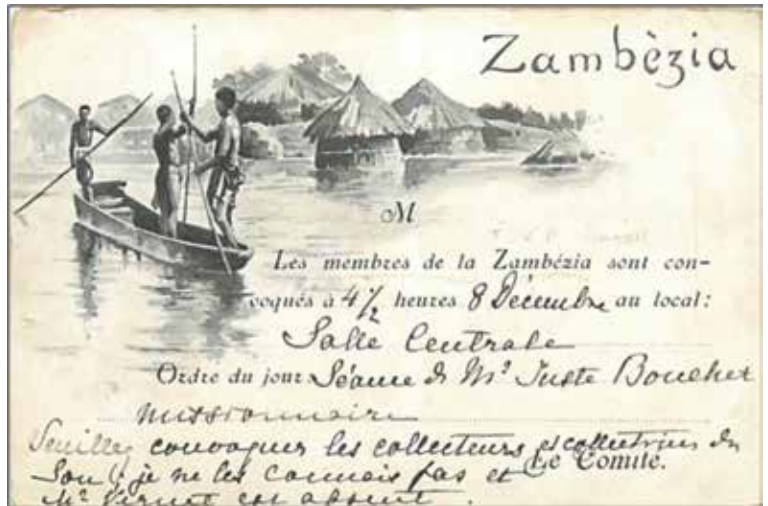 Zambèzia
M
Les membres de la Zambézia sont con-
voqués à 4 1/2 heures 8 Décembre au local:
Salle Centrale
Ordre du jour: Séance de Mr Juste Boucher
missionnaire
Veuillez convoquer les collecteurs et collectrices du
Sou, je ne les connais pas et
Le Comité.
Mr est absent.